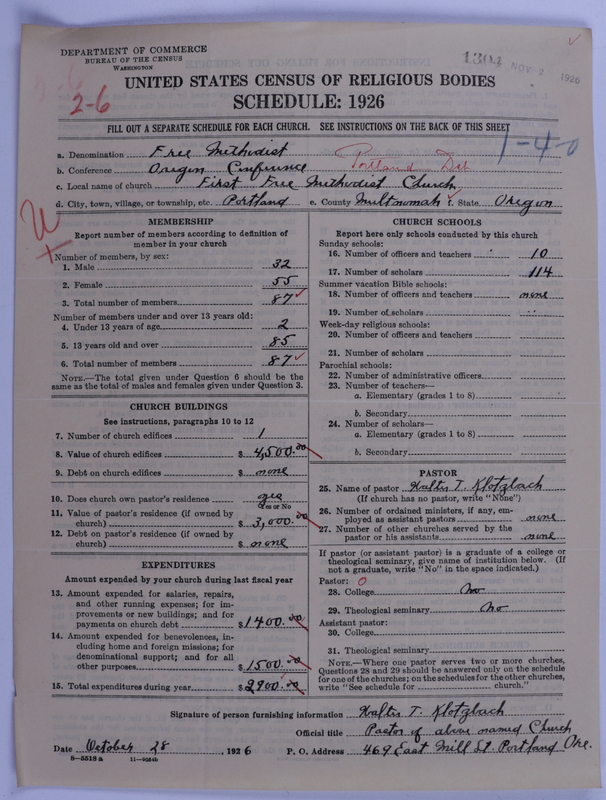 DEPARTMENT OF COMMERCE
BUREAU OF THE CENSUS
WASHINGTON
1303 NOV 2 1926
2-6
UNITED STATES CENSUS OF RELIGIOUS BODIES
SCHEDULE: 1926
FILL OUT A SEPARATE SCHEDULE FOR EACH CHURCH. SEE INSTRUCTIONS ON THE BACK OF THIS SHEET
1-4-0
a. Denomination Free Methodist
b. Conference Oregon Conference Portland Dist
c. Local name of church First Free Methodist Church
d. City, town, village, or township, etc. Portland e. County Multnomah f. State Oregon
MEMBERSHIP
Report number of members according to definition of
member in your church
Number of members, by sex:
1. Male 32
2. Female 55
3. Total number of members 87
Number of members under and over 13 years old:
4. Under 13 years of age 2
5. 13 years old and over 85
6. Total number of members 87
NOTE.—The total given under Question 6 should be the
same as the total of males and females given under Question 3.
CHURCH BUILDINGS
See instructions, paragraphs 10 to 12
7. Number of church edifices 1
8. Value of church edifices $ 4,500.00
9. Debt on church edifices $ none
10. Does church own pastor's residence yes
Yes or No
11. Value of pastor's residence (if owned by
church) $ 3,000.00
12. Debt on pastor's residence (if owned by
church) $ none
EXPENDITURES
Amount expended by your church during last fiscal year
13. Amount expended for salaries, repairs,
and other running expenses; for im-
provements or new buildings; and for
payments on church debt $ 1400.00
14. Amount expended for benevolences, in-
cluding home and foreign missions; for
denominational support; and for all
other purposes $ 1500.00
15. Total expenditures during year $ 2900.00
CHURCH SCHOOLS
Report here only schools conducted by this church
Sunday schools:
16. Number of officers and teachers 10
17. Number of scholars 114
Summer vacation Bible schools:
18. Number of officers and teachers none
19. Number of scholars "
Week-day religious schools:
20. Number of officers and teachers
21. Number of scholars
Parochial schools:
22. Number of administrative officers
23. Number of teachers—
a. Elementary (grades 1 to 8)
b. Secondary
24. Number of scholars—
a. Elementary (grades 1 to 8)
b. Secondary
PASTOR
25. Name of pastor Walter T. Klotzbach
(If church has no pastor, write "None")
26. Number of ordained ministers, if any, em-
ployed as assistant pastors none
27. Number of other churches served by the
pastor or his assistants none
If pastor (or assistant pastor) is a graduate of a college or
theological seminary, give name of institution below. (If
not a graduate, write "No" in the space indicated.)
Pastor: 0
28. College No
29. Theological seminary No
Assistant pastor:
30. College
31. Theological seminary
NOTE.—Where one pastor serves two or more churches,
Questions 28 and 29 should be answered only on the schedule
for one of the churches; on the schedules for the other churches,
write "See schedule for church."
Signature of person furnishing information Walter T. Klotzbach
Official title Pastor of above named Church
Date October 28, 1926 P. O. Address 469 East Mill St. Portland Ore.
8-5518 a 11-9024b